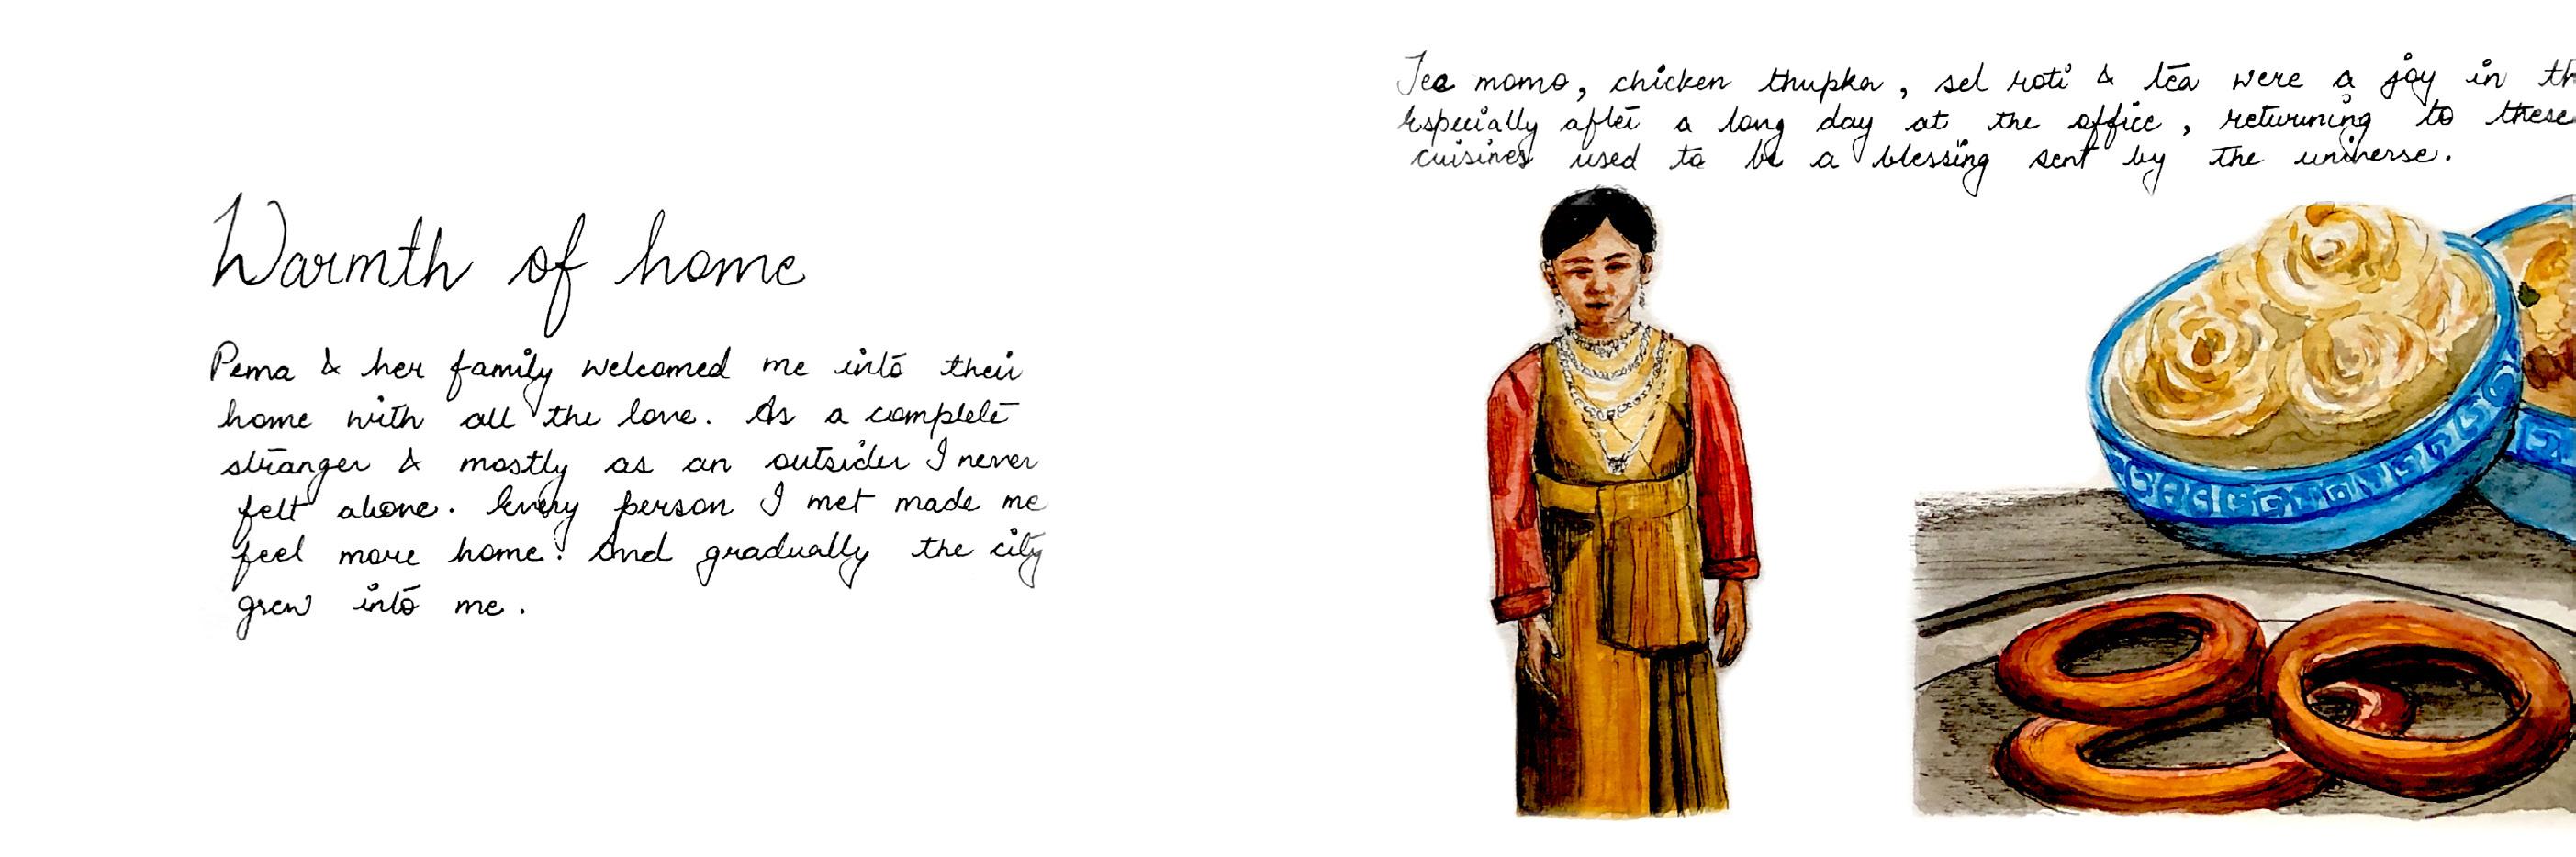 Warmth of home
Pema & her family welcomed me into their
home with all the love. As a complete
stranger & mostly as an outsider I never
felt alone. Every person I met made me
feel more home. And gradually the city
grew into me.
Tea momo, chicken thupka, sel roti & tea were a joy in th
Especially after a long day at the office, returning to these
cuisines used to be a blessing sent by the universe.